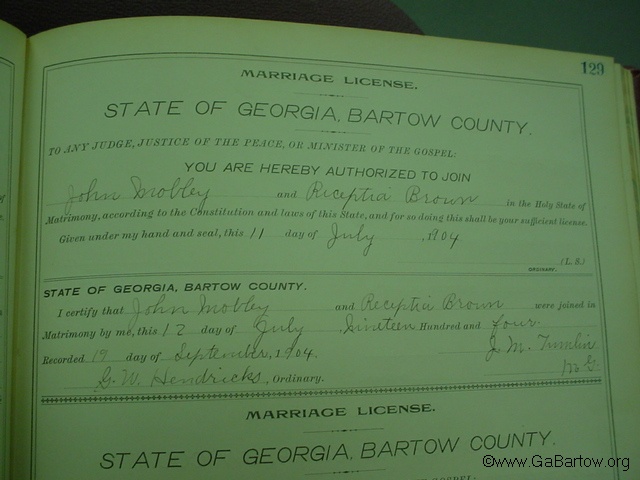 129
MARRIAGE LICENSE.
STATE OF GEORGIA, BARTOW COUNTY.
TO ANY JUDGE, JUSTICE OF THE PEACE, OR MINISTER OF THE GOSPEL:
YOU ARE HEREBY AUTHORIZED TO JOIN
John Mobley and Receptia Brown in the Holy State of
Matrimony, according to the Constitution and laws of this State, and for so doing this shall be your sufficient license.
Given under my hand and seal, this 11 day of July, 1904
(L. S.)
ORDINARY.
STATE OF GEORGIA, BARTOW COUNTY.
I certify that John Mobley and Receptia Brown were joined in
Matrimony by me, this 12 day of July, Nineteen Hundred and four.
Recorded 19 day of September, 1904. J. M. Tumlin
G. W. Hendricks, Ordinary.
MARRIAGE LICENSE.
STATE OF GEORGIA, BARTOW COUNTY.
©www.GaBartow.org